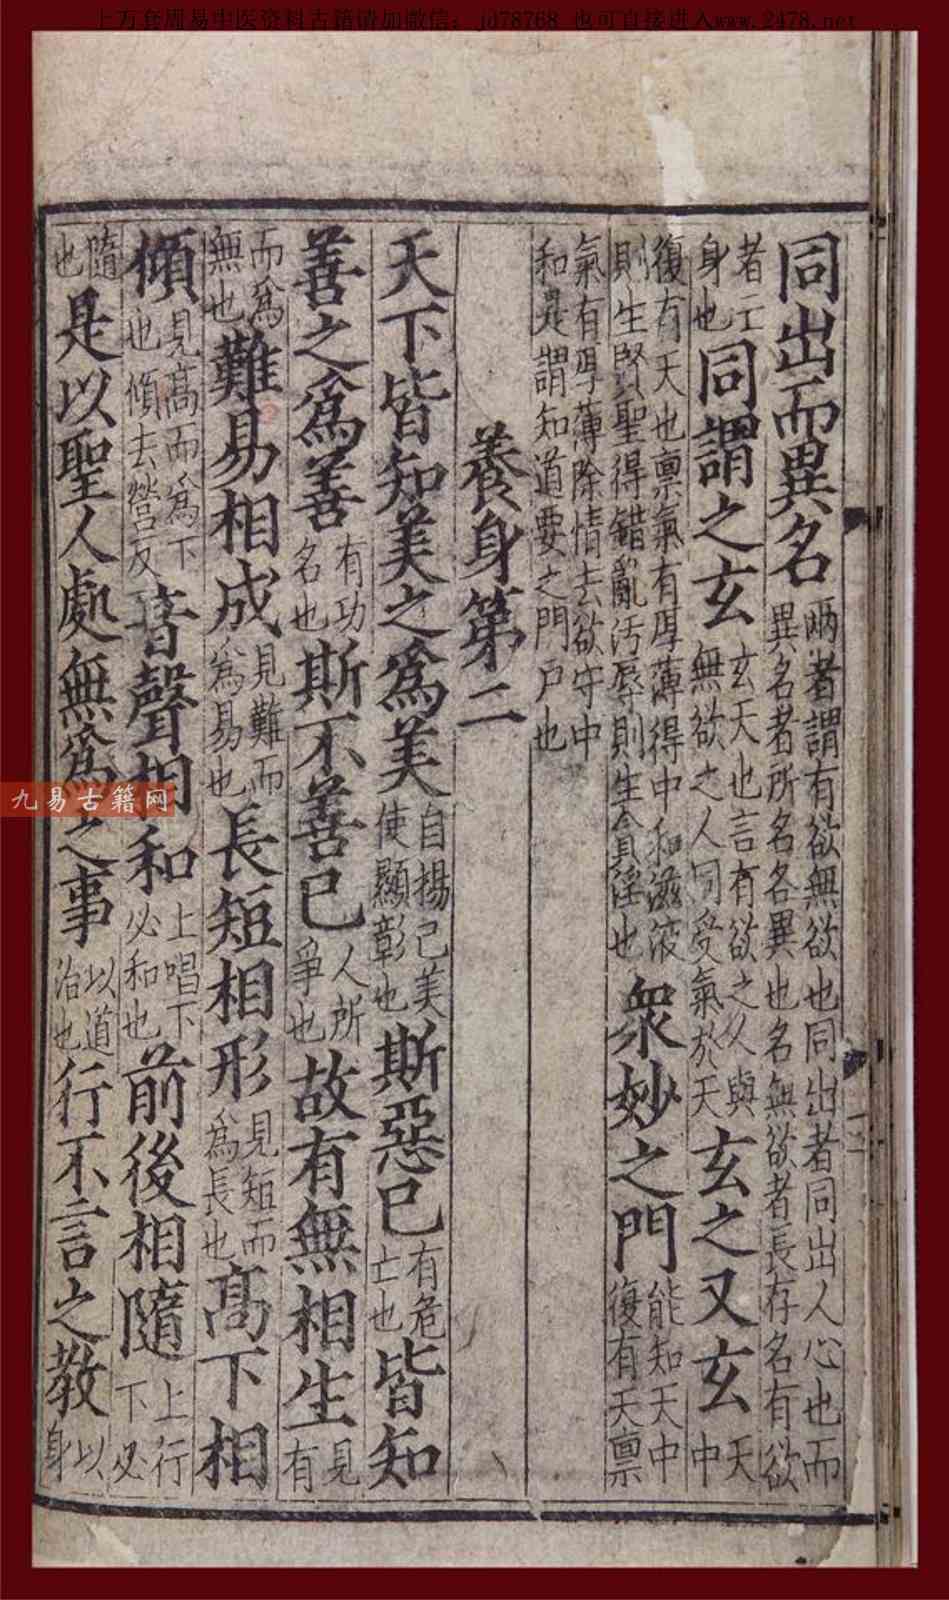 上万套周易中医资料古籍请加微信：jd78768 也可直接进入www.2478.net
同出而異名兩者謂有欲無欲也同出者同出人心也而異名者所名各異也名無欲者長存名有欲
者亡身也同謂之玄玄天也言有欲之人與無欲之人同受氣於天玄之又玄天中
復有天也稟氣有厚薄得中和滋液則生賢聖得錯亂污辱則生貪淫也衆妙之門能知天中復有天稟
氣有厚薄除情去欲守中和是謂知道要之門戶也
養身第二
天下皆知美之為美自揚己美使顯彰也斯惡已有危亡也皆知
善之為善有功名也斯不善已人所爭也故有無相生見有
而為無也難易相成見難而為易也長短相形見短而為長也髙下相
傾見髙而為下也傾去營反音聲相和上唱下必和也前後相隨上行下必
隨也是以聖人處無為之事以道治也行不言之教以身
九易古籍网